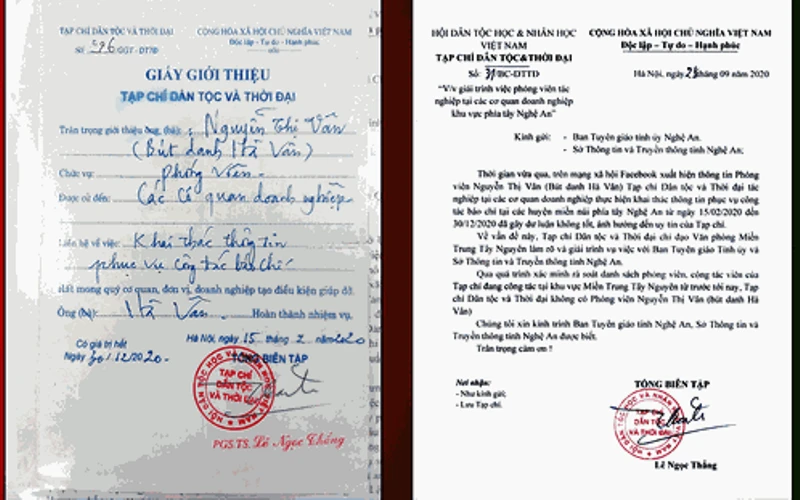 TẠP CHÍ DÂN TỘC VÀ THỜI ĐẠI
Số: 596/GGT-DTTĐ
CỘNG HÒA XÃ HỘI CHỦ NGHĨA VIỆT NAM
Độc lập - Tự do - Hạnh phúc
GIẤY GIỚI THIỆU
TẠP CHÍ DÂN TỘC VÀ THỜI ĐẠI
Trân trọng giới thiệu ông, (bà): Nguyễn Thị Vân
(Bút danh Hà Vân)
Chức vụ: phóng viên.
Được cử đến: Các cơ quan doanh nghiệp
Liên hệ về việc: Khai thác thông tin
phục vụ công tác báo chí
Rất mong quý cơ quan, đơn vị, doanh nghiệp tạo điều kiện giúp đỡ
Ông (bà): Hà Vân. Hoàn thành nhiệm vụ.
Hà Nội, ngày 15 tháng 2 năm 2020
Có giá trị hết
Ngày 30/12/2020.
TỔNG BIÊN TẬP
HỘI DÂN TỘC HỌC VÀ NHÂN HỌC VIỆT NAM
TẠP CHÍ
DÂN TỘC
VÀ THỜI ĐẠI
PGS.TS. Lê Ngọc Thắng
HỘI DÂN TỘC HỌC & NHÂN HỌC
VIỆT NAM
TẠP CHÍ DÂN TỘC&THỜI ĐẠI
Số: 31/BC-DTTD
"V/v giải trình việc phóng viên tác
nghiệp tại các cơ quan doanh nghiệp
khu vực phía tây Nghệ An"
CỘNG HÒA XÃ HỘI CHỦ NGHĨA VIỆT NAM
Độc lập – Tự do – Hạnh phúc
Hà Nội, ngày tháng 09 năm 2020
Kính gửi: - Ban Tuyên giáo tỉnh ủy Nghệ An.
- Sở Thông tin và Truyền thông tỉnh Nghệ An;
Thời gian vừa qua, trên mạng xã hội Facebook xuất hiện thông tin Phóng
viên Nguyễn Thị Vân (Bút danh Hà Vân) Tạp chí Dân tộc và Thời đại tác
nghiệp tại các cơ quan doanh nghiệp thực hiện khai thác thông tin phục vụ công
tác báo chí tại các huyện miền núi phía tây Nghệ An từ ngày 15/02/2020 đến
30/12/2020 đã gây dư luận không tốt, ảnh hưởng đến uy tín của Tạp chí.
Về vấn đề này, Tạp chí Dân tộc và Thời đại chỉ đạo Văn phòng Miền
Trung Tây Nguyên làm rõ và giải trình vụ việc với Ban Tuyên giáo Tỉnh ủy và
Sở Thông tin và Truyền thông tỉnh Nghệ An.
Qua quá trình xác minh rà soát danh sách phóng viên, cộng tác viên của
Tạp chí đang công tác tại khu vực Miền Trung Tây Nguyên từ trước tới nay, Tạp
chí Dân tộc và Thời đại không có Phóng viên Nguyễn Thị Vân (bút danh Hà
Vân)
Chúng tôi xin kính trình Ban Tuyên giáo Nghệ An, Sở Thông tin và
Truyền thông tỉnh Nghệ An được biết.
Trân trọng cảm ơn !
Nơi nhận:
- Như kính gửi;
- Lưu Tạp chí.
TỔNG BIÊN TẬP
TẠP CHÍ
DÂN TỘC
VÀ THỜI ĐẠI
Lê Ngọc Thắng